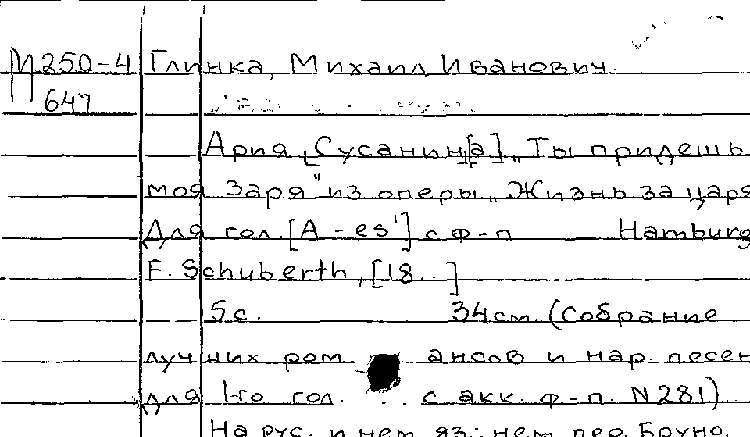 М250-4 Глинка, Михаил Иванович.
647
Ария [Сусанин[а] „Ты придешь
моя заря" из оперы „Жизнь за царя
Для гол. [A-es'] с ф-п Hamburg
F. Schuberth, [18..]
5с. 34см. (Собрание
лучших романсов и нар. песен
для 1го гол. с акк. ф-п. N281)
На рус. и нем яз.: нем пер. Бруно